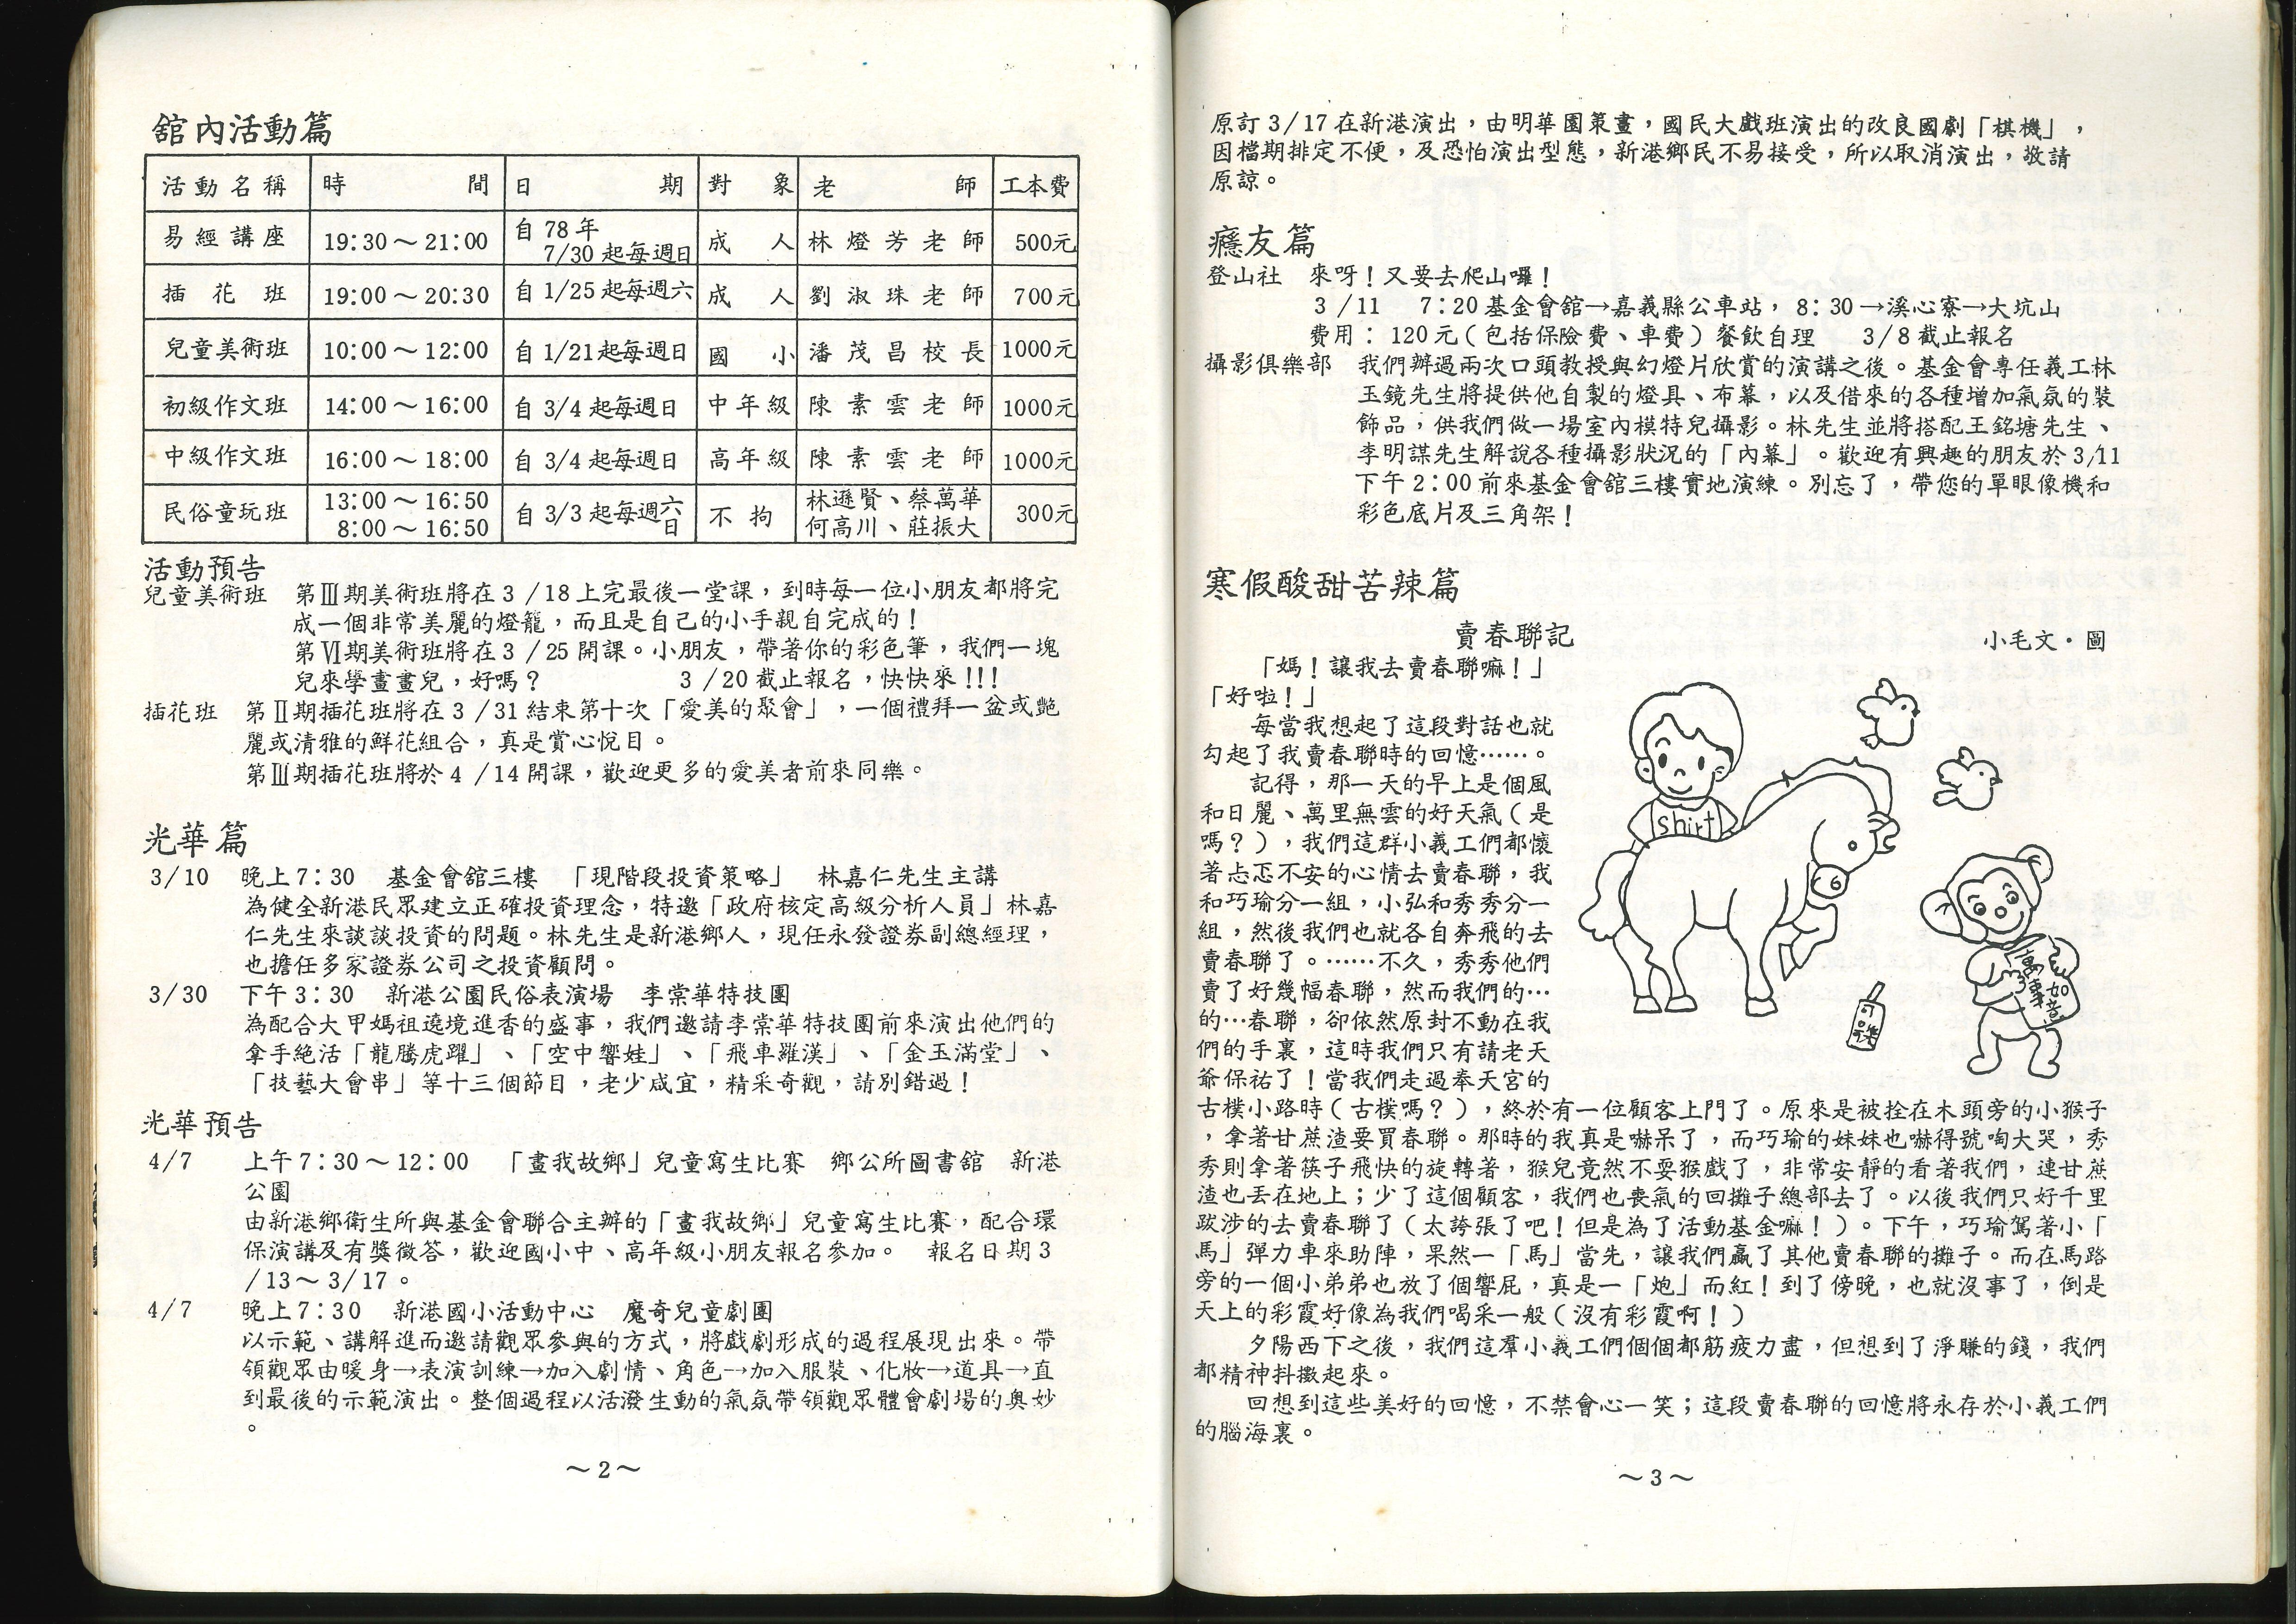 舘內活動篇
活動名稱 時間 日期 對象 老師 工本費
易經講座 19:30～21:00 自78年7/30起每週日 成人 林燈芳老師 500元
插花班 19:00～20:30 自1/25起每週六 成人 劉淑珠老師 700元
兒童美術班 10:00～12:00 自1/21起每週日 國小 潘茂昌校長 1000元
初級作文班 14:00～16:00 自3/4起每週日 中年級 陳素雲老師 1000元
中級作文班 16:00～18:00 自3/4起每週日 高年級 陳素雲老師 1000元
民俗童玩班 13:00～16:50 8:00～16:50 自3/3起每週六日 不拘 林遜賢、蔡萬華 何高川、莊振大 300元
活動預告
兒童美術班 第Ⅲ期美術班將在3/18上完最後一堂課，到時每一位小朋友都將完
成一個非常美麗的燈籠，而且是自己的小手親自完成的！
第Ⅵ期美術班將在3/25開課。小朋友，帶著你的彩色筆，我們一塊
兒來學畫畫兒，好嗎？ 3/20截止報名，快快來!!!
插花班 第Ⅱ期插花班將在3/31結束第十次「愛美的聚會」，一個禮拜一盆或艷
麗或清雅的鮮花組合，真是賞心悅目。
第Ⅲ期插花班將於4/14開課，歡迎更多的愛美者前來同樂。
光華篇
3/10 晚上7:30 基金會舘三樓 「現階段投資策略」 林嘉仁先生主講
為健全新港民眾建立正確投資理念，特邀「政府核定高級分析人員」林嘉
仁先生來談談投資的問題。林先生是新港鄉人，現任永發證券副總經理，
也擔任多家證券公司之投資顧問。
3/30 下午3:30 新港公園民俗表演場 李棠華特技團
為配合大甲媽祖遶境進香的盛事，我們邀請李棠華特技團前來演出他們的
拿手絕活「龍騰虎躍」、「空中響娃」、「飛車羅漢」、「金玉滿堂」、
「技藝大會串」等十三個節目，老少咸宜，精采奇觀，請別錯過！
光華預告
4/7 上午7:30～12:00 「畫我故鄉」兒童寫生比賽 鄉公所圖書舘 新港
公園
由新港鄉衛生所與基金會聯合主辦的「畫我故鄉」兒童寫生比賽，配合環
保演講及有獎徵答，歡迎國小中、高年級小朋友報名參加。 報名日期3
/13～3/17。
4/7 晚上7:30 新港國小活動中心 魔奇兒童劇團
以示範、講解進而邀請觀眾參與的方式，將戲劇形成的過程展現出來。帶
領觀眾由暖身→表演訓練→加入劇情、角色→加入服裝、化妝→道具→直
到最後的示範演出。整個過程以活潑生動的氣氛帶領觀眾體會劇場的奧妙
。
～2～
原訂3/17在新港演出，由明華園策畫，國民大戲班演出的改良國劇「棋機」，
因檔期排定不便，及恐怕演出型態，新港鄉民不易接受，所以取消演出，敬請
原諒。
癮友篇
登山社 來呀！又要去爬山囉！
3/11 7:20基金會舘→嘉義縣公車站，8:30→溪心寮→大坑山
費用：120元（包括保險費、車費）餐飲自理 3/8截止報名
攝影俱樂部 我們辦過兩次口頭教授與幻燈片欣賞的演講之後。基金會專任義工林
玉鏡先生將提供他自製的燈具、布幕，以及借來的各種增加氣氛的裝
飾品，供我們做一場室內模特兒攝影。林先生並將搭配王銘塘先生、
李明謀先生解說各種攝影狀況的「內幕」。歡迎有興趣的朋友於3/11
下午2:00前來基金會舘三樓實地演練。別忘了，帶您的單眼像機和
彩色底片及三角架！
寒假酸甜苦辣篇
賣春聯記
小毛文・圖
「媽！讓我去賣春聯嘛！」
「好啦！」
每當我想起了這段對話也就
勾起了我賣春聯時的回憶……。
記得，那一天的早上是個風
和日麗、萬里無雲的好天氣（是
嗎？），我們這群小義工們都懷
著忐忑不安的心情去賣春聯，我
和巧瑜分一組，小弘和秀秀分一
組，然後我們也就各自奔飛的去
賣春聯了。……不久，秀秀他們
賣了好幾幅春聯，然而我們的…
的…春聯，卻依然原封不動在我
們的手裏，這時我們只有請老天
爺保祐了！當我們走過奉天宮的
古樸小路時（古樸嗎？），終於有一位顧客上門了。原來是被拴在木頭旁的小猴子
，拿著甘蔗渣要買春聯。那時的我真是嚇呆了，而巧瑜的妹妹也嚇得號啕大哭，秀
秀則拿著筷子飛快的旋轉著，猴兒竟然不耍猴戲了，非常安靜的看著我們，連甘蔗
渣也丟在地上；少了這個顧客，我們也喪氣的回攤子總部去了。以後我們只好千里
跋涉的去賣春聯了（太誇張了吧！但是為了活動基金嘛！）。下午，巧瑜駕著小「
馬」彈力車來助陣，果然一「馬」當先，讓我們贏了其他賣春聯的攤子。而在馬路
旁的一個小弟弟也放了個響屁，真是一「炮」而紅！到了傍晚，也就沒事了，倒是
天上的彩霞好像為我們喝采一般（沒有彩霞啊！）
夕陽西下之後，我們這羣小義工們個個都筋疲力盡，但想到了淨賺的錢，我們
都精神抖擻起來。
回想到這些美好的回憶，不禁會心一笑；這段賣春聯的回憶將永存於小義工們
的腦海裏。
shirt
萬事如意
～3～